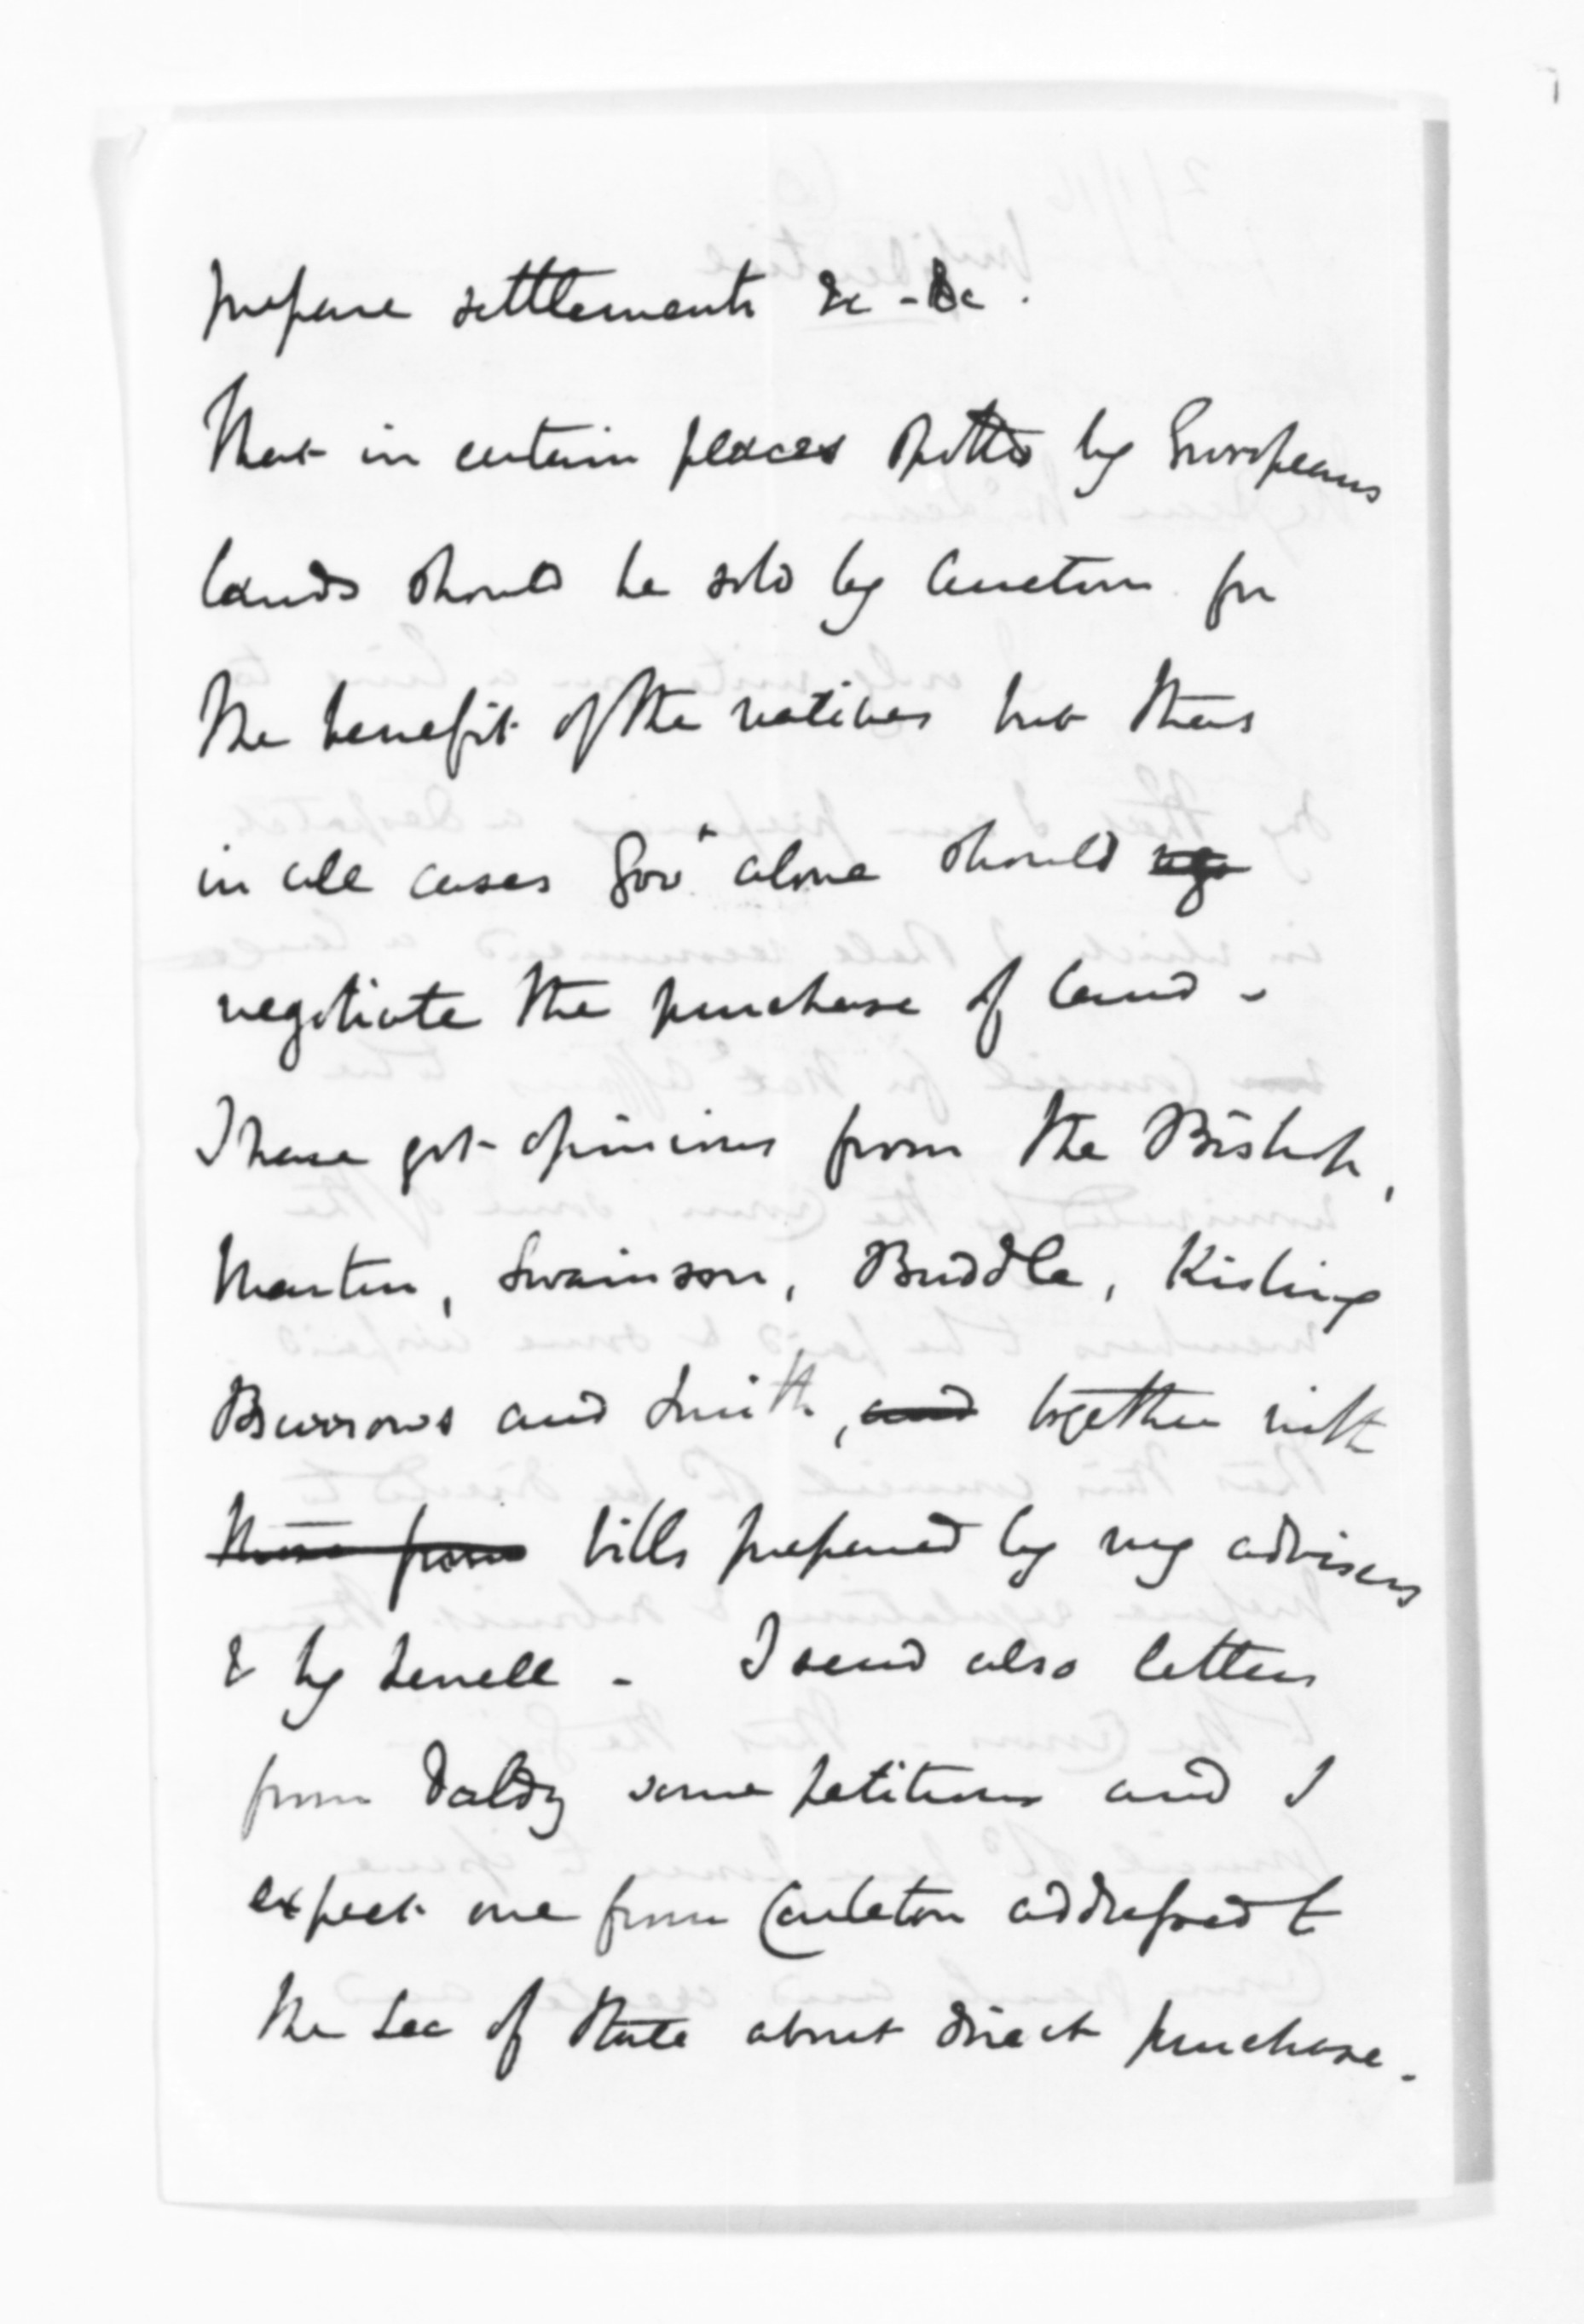 prepare settlements &c - &c.
That in certain places by Europeans
lands should be sold by auction for
the benefit of the natives but that
in all cases Govt alone should
negotiate the purchase of land -
I have got opinions from the Bishop,
Martin, Swainson, Buddle, Kisling
Burrows and Smith, and together with
those from bills prepared by my advisers
& by Sewell - I send also letters
from Daldy some petitions and I
expect one from Carleton addressed to
the Sec of State about direct purchase.